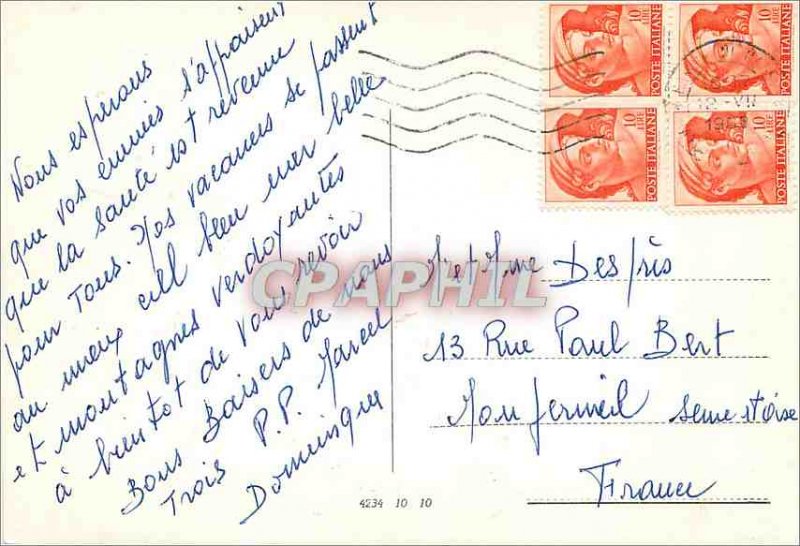 Nous esperons
que vos ennuies s'appaisent
que la santé est revenue
pour Tous. Nos vacances se passent
au mieux ciel bleu mer belle
et montagnes verdoyantes
à bientot de vous revoir
Bons Baisers de nous
Trois P.P. Marcel
Dominique
10 LIRE POSTE ITALIANE
10 LIRE POSTE ITALIANE
10 LIRE POSTE ITALIANE
10 LIRE POSTE ITALIANE
CPAPHIL
Mr et Mme Despris
13 Rue Paul Bert
Monfermeil Seine et Oise
France
4234 10 10